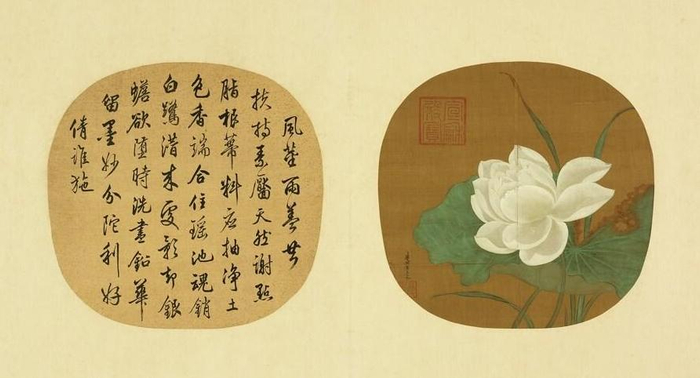 風裳雨蓋共
扶持素靨天然謝點
脂根蒂料應抽淨土
色香端合住瑤池魂銷
白鷺潛來處影卻銀
蟾欲墮時洗盡鉛華
留墨妙分陀利好
倩誰施